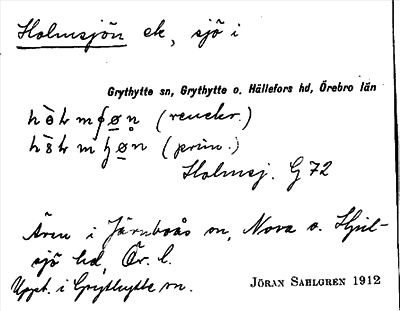 Holmsjön ek, sjö i
Grythytte sn, Grythytte o. Hällefors hd, Örebro län
(renskr.)
(prim.)
Holmsj. G 72
Även i Järnboås sn, Nora o. Hjul-
sjö hd, Ör. l.
Uppt. i Grythytte sn.
JÖRAN SAHLGREN 1912